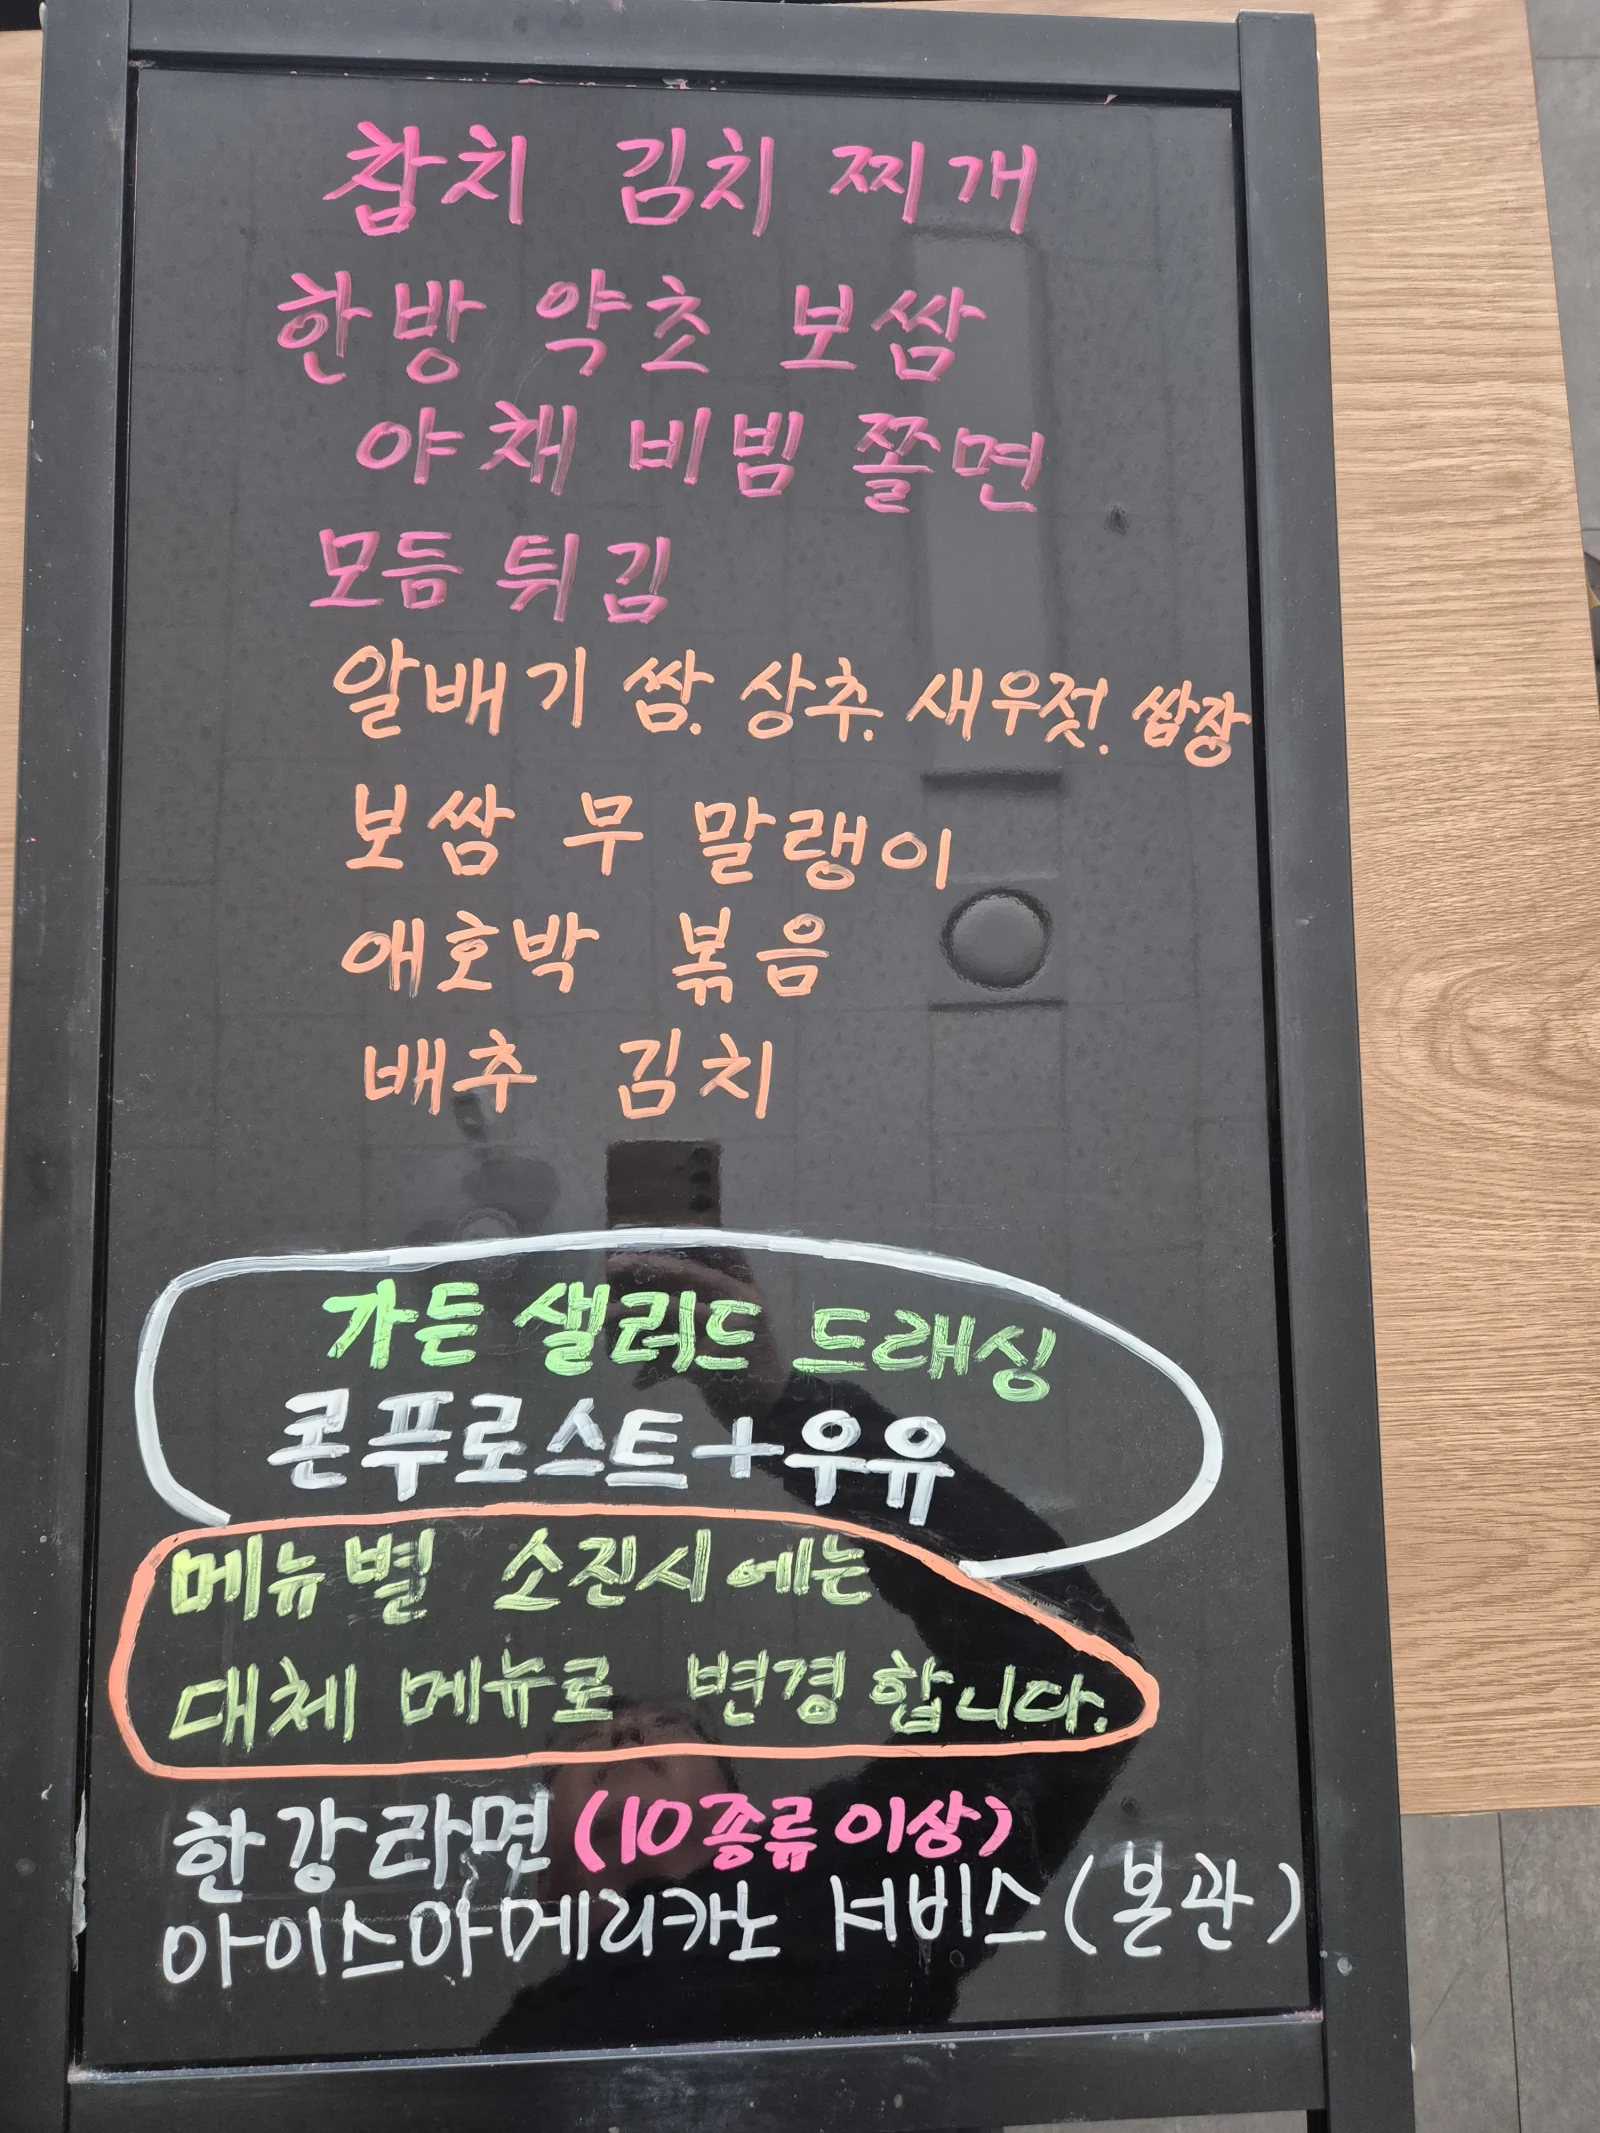 참치 김치 찌개
한방 약초 보쌈
야채 비빔 쫄면
모듬 튀김
알배기 쌈. 상추. 새우젓. 쌈장
보쌈 무 말랭이
애호박 볶음
배추 김치
가든 샐러드 드래싱
콘푸로스트+우유
메뉴별 소진시에는
대체 메뉴로 변경 합니다.
한강라면 (10종류이상)
아이스아메리카노 서비스 (본관)